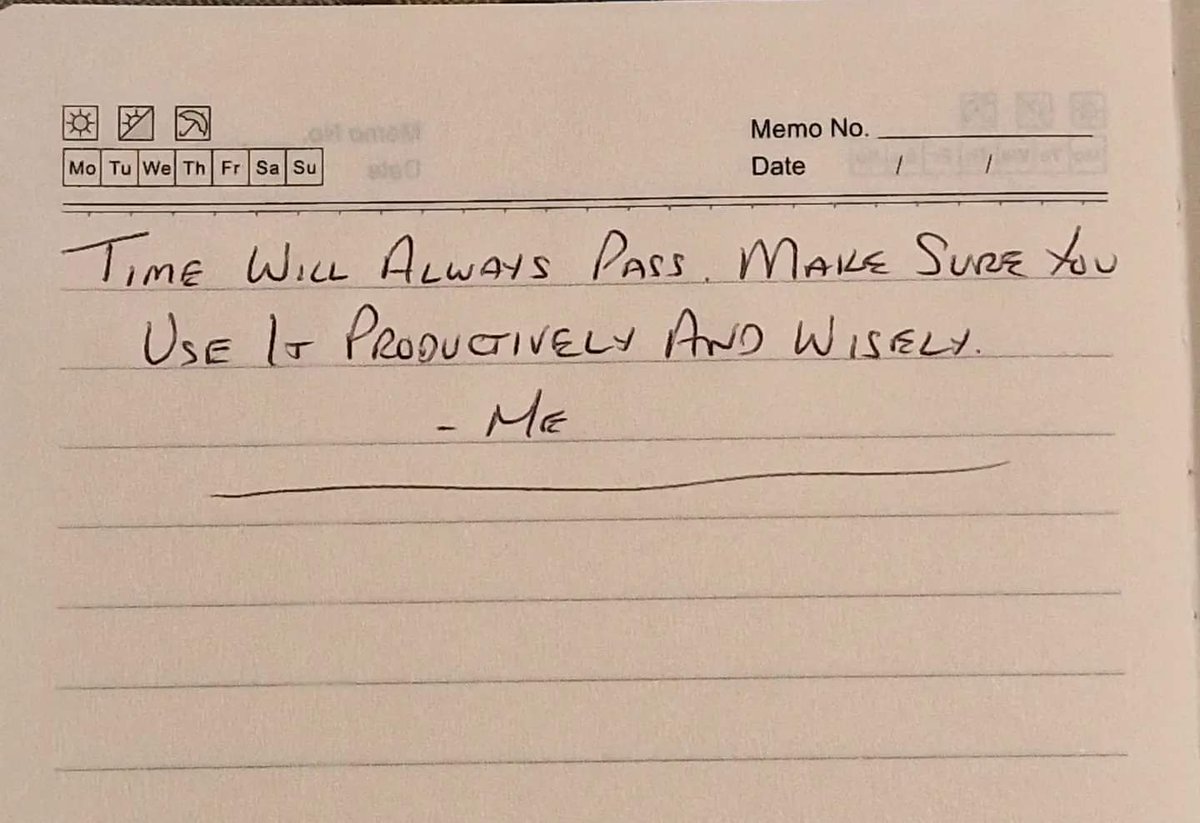 Memo No.
Mo Tu We Th Fr Sa Su Date / /
TIME WILL ALWAYS PASS. MAKE SURE YOU
USE IT PRODUCTIVELY AND WISELY.
- ME